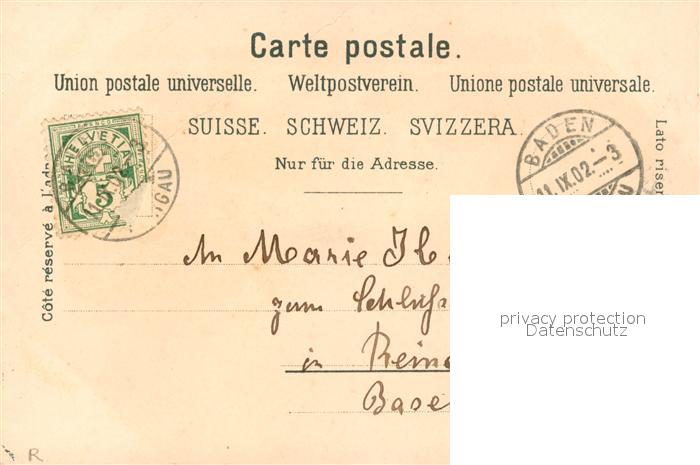 Carte postale.
Union postale universelle. Weltpostverein. Unione postale universale.
SUISSE. SCHWEIZ. SVIZZERA.
Nur für die Adresse.
Côté réservé à l'adr
Lato riser
HELVETIA
5
BADEN
11.IX.02.-3
An Marie
zum
in Rein
Base
privacy protection
Datenschutz
R